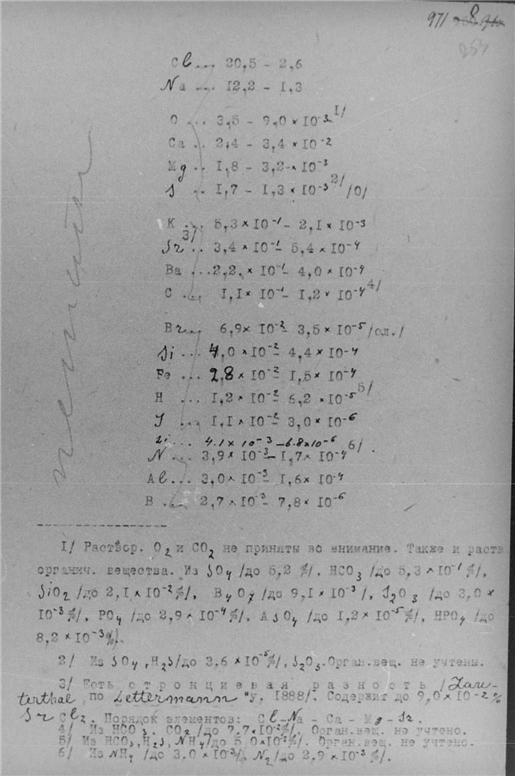 971
254
Cl... 20,5 - 2,6
Na ... 12,2 - 1,3
O ... 3,5 - 9,0×10⁻³ 1/
Ca ... 2,4 - 3,4×10⁻²
Mg .. 1,8 - 3,2×10⁻³
S ... 1,7 - 1,3×10⁻³ 2/ /0/
K ... 5,3×10⁻¹- 2,1×10⁻³
Sr 3/ .. 3,4×10⁻¹- 5,4×10⁻⁴
Ba ...2,2.×10⁻¹- 4,0×10⁻⁴
C ... 1,1×10⁻¹- 1,2×10⁻⁴ 4/
Br... 6,9×10⁻²- 3,5×10⁻⁵/сл./
Si ... 4,0×10⁻²- 4,4×10⁻⁴
Fe ... 2,8×10⁻²- 1,5×10⁻⁴
H ... 1,2×10⁻²- 6,2×10⁻⁵ 5/
J ... 1,1×10⁻²- 3,0×10⁻⁶
Li ... 4.1×10⁻³-6.8×10⁻⁶
N ... 3,9×10⁻³- 1,7×10⁻⁴ 6/
Al... 3,0×10⁻³- 1,6×10⁻⁴
B ... 2,7×10⁻³- 7,8×10⁻⁶
1/ Раствор. O₂ и CO₂ не приняты во внимание. Также и раств
органич. вещества. Из SO₄ /до 5,2 %/. HCO₃ /до 5,3×10⁻¹%/,
SiO₂ /до 2,1×10⁻²%/, B₄O₇ /до 9,1×10⁻³/, S₂O₃ /до 3,0×
10⁻³%/, PO₄ /до 2,9×10⁻⁴%/, AsO₄ /до 1,2×10⁻⁵%/, HPO₄ /до
8,2×10⁻³%/.
2/ Из SO₄,H₂S/до 3,6×10⁻⁵%/,S₂O₃.Орган.вещ. не учтены.
3/ Есть стронциевая разность /Lau-
terthal по Lettermann'у, 1888/. Содержит до 9,0×10⁻²%
SrCl₂. Порядок элементов: Cl-Na - Ca - Mg - Sr.
4/ Из HCO₃. CO₂/до 7,7.10⁻²%/. Орган.вещ. не учтено.
5/ Из HCO₃,H₂S,NH₄/до 5,0×10⁻³%/. Орган.вещ. не учтено.
6/ Из NH₄ /до 3,0×10⁻³/, N₂/до 2,9×10⁻³%/.